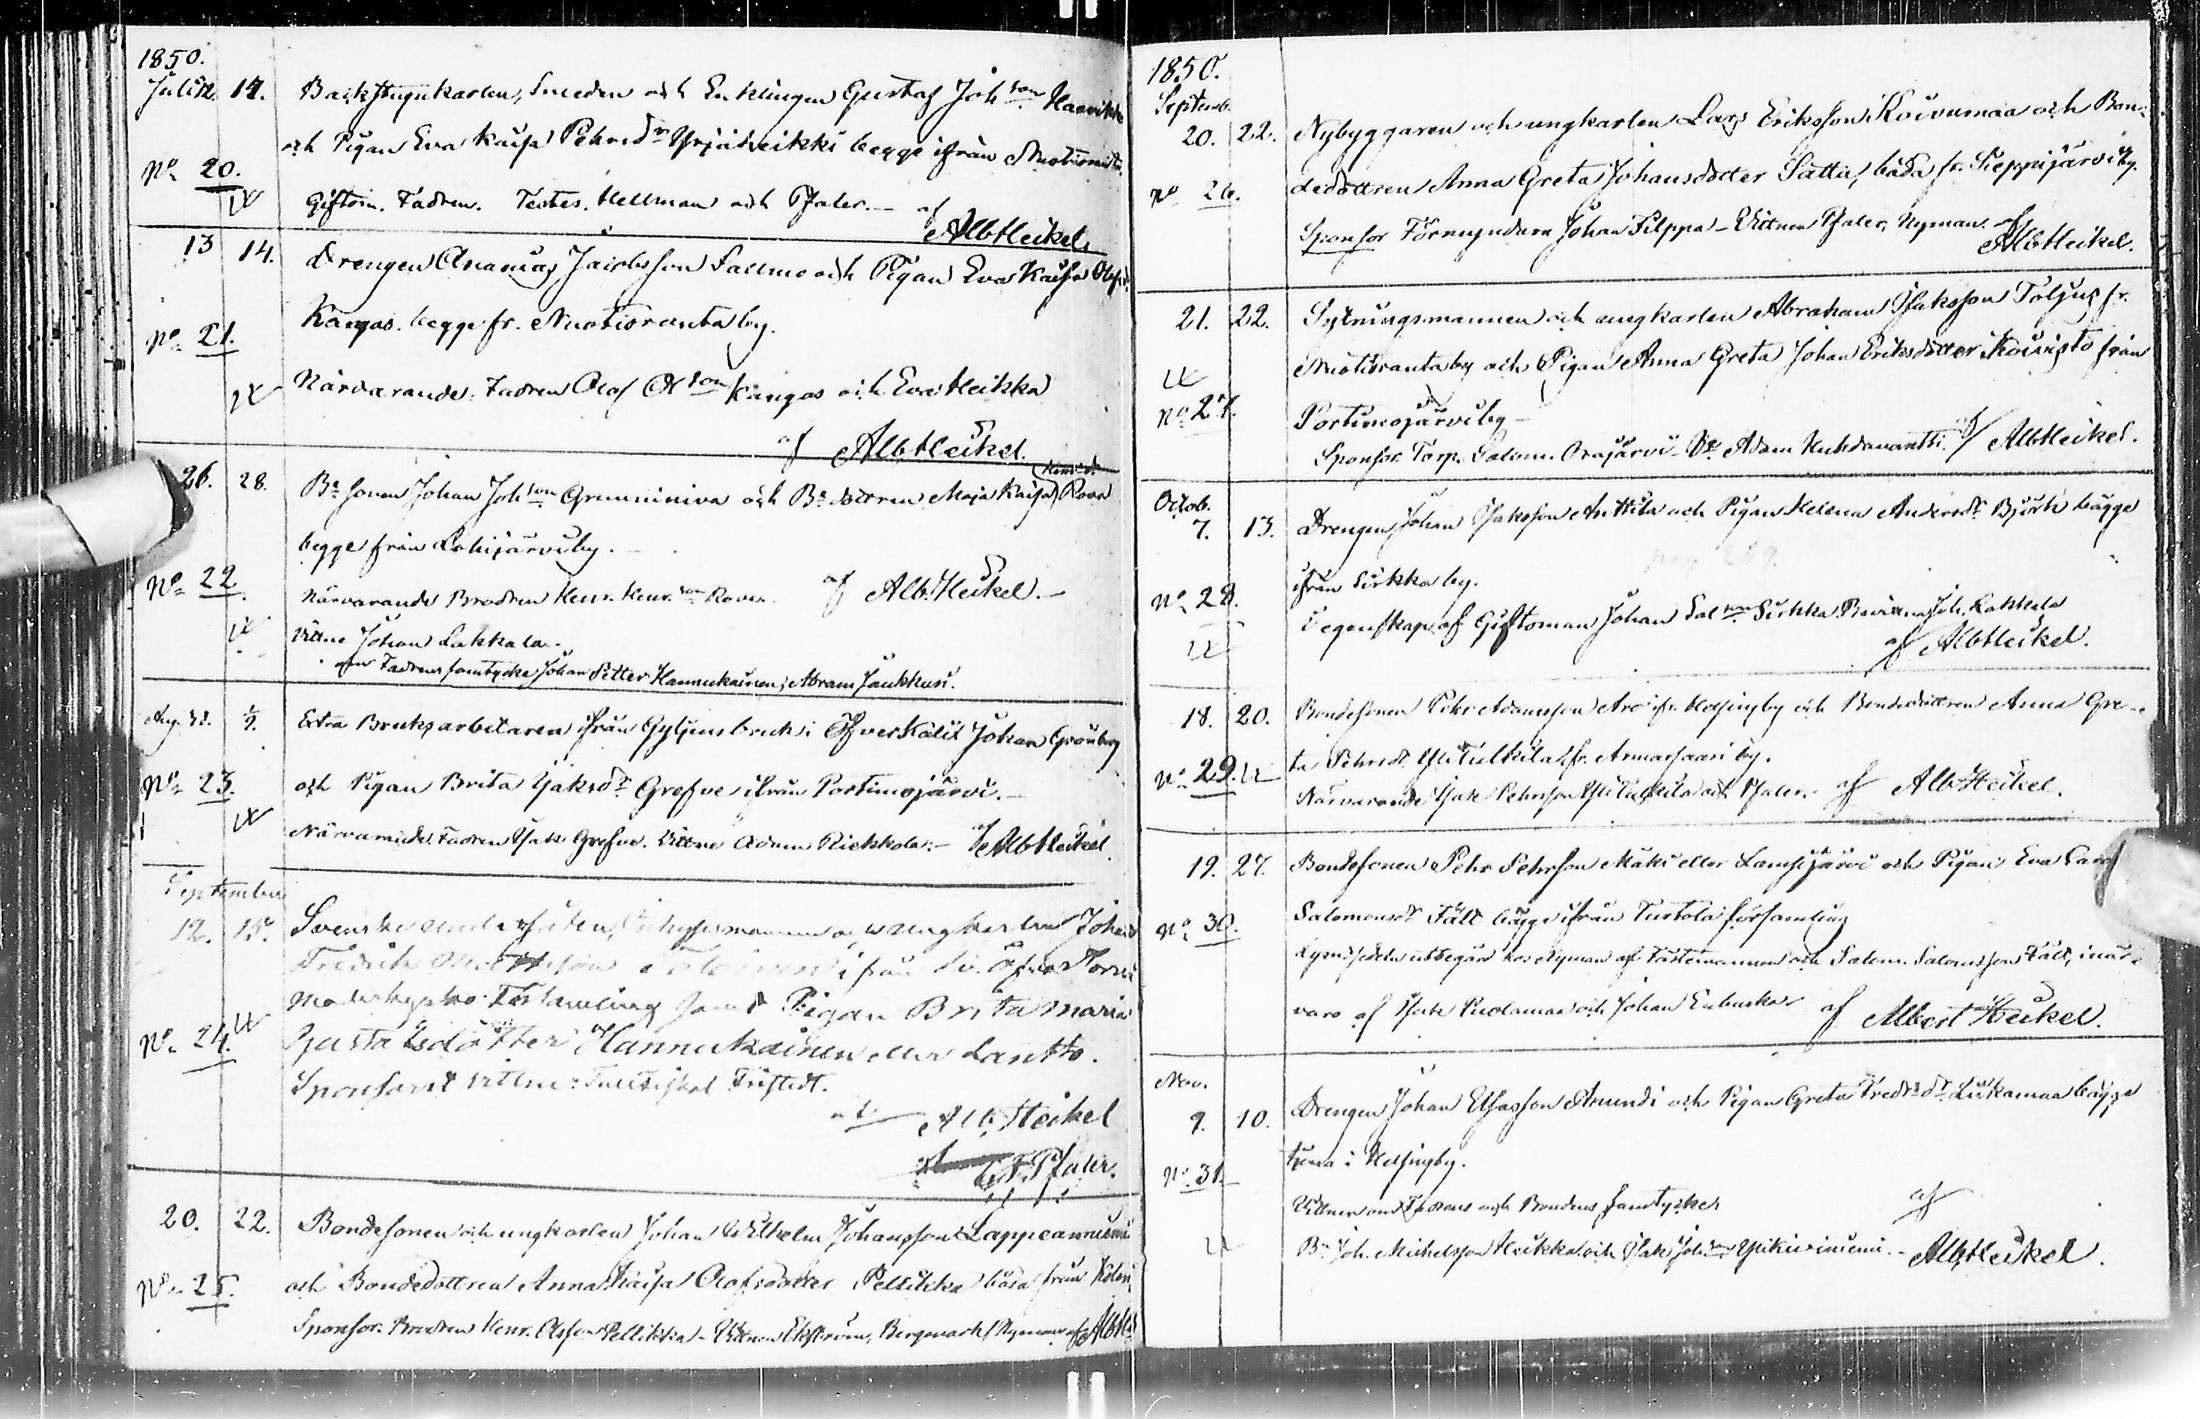 1850.
Julii 12. 14. Backstugukarlen, Smeden och Enklingen Gustaf Joh:son
och Pigan Eva Kaisa Pehrsdr Yrjäheikki begge ifrån
No 20. Giftom. Fadren. Testes. Hellman och Pfaler. — af
AlbHeikel.
13 14. Drengen Ananias Jacobsson Salmo och Pigan Eva Kaisa Olofsd.
No 21. Kangas. begge fr. Muotioranta by.
Närvarande: Fadren Olof Ol:son Kangas och Eva Heikka
af AlbHeikel.
26. 28. Bd sonen Johan Joh:son Grunniniva och Bd dottren Maja Kaisa Henrsdr Rova
begge från Lohijärvi by.
No 22. Närvarande Brodren Henr. Henr.son Rova. af Alb.Heikel.
Vittne Johan Lakkala.
om Fadrens samtycke Johan Petter Hannukainen, Abram Jaukkuri.
Aug. 31. 1/9. Extra Bruksarbetaren ifrån Gyljens bruk i Öfver Kalix Johan Grönberg
No 23. och Pigan Brita Isaksdr Grefve ifrån Portimojärvi.
Närvarande. Fadren Isak Grefve. Vittne Adam Riekkola. — af AlbHeikel.
September
12. 15. Svenske undersåten, och ungkarlen Johan
Fredrik ifrån Öfver Torneå
Moderkyrko Församling samt Pigan Brita Maria
No 24. Gustafsdotter Hannukainen eller Lantto.
Sponsor et vittne: Fristedt.
af Alb. Heikel
Pfaler.
20. 22. Bondesonen och ungkarlen Johan Wilhelm Johansson Lappeanniemi
No 25. och Bondedottren Anna Kaisa Olofsdotter Pellikka båda från Kolari
Sponsor. Brodren Henr. Olsson Pellikka – Vittnen Ekström, Nyman af AlbHei
1850.
Septemb.
20. 22. Nybyggaren och ungkarlen Lars Eriksson Koivumaa och Bon-
No 26. dedottren Anna Greta Johansdotter Satta, båda fr. Sieppijärvi by.
Sponsor Förmyndaren Johan Filppa – Vittnen Pfaler, Nyman. af
AlbHeikel.
21. 22. Sytningsmannen och ungkarlen Abraham Isaksson Toljus fr.
Muotioranta by och Pigan Anna Greta Johan Eriksdotter Koivisto från
No 27. Portimojärvi by –
Sponsor. Torp. Salom. Orajärvi. Vt Adam af AlbHeikel.
Octob.
7. 13. Drengen Johan Isaksson Anttila och Pigan Helena Andersdr Björk bägge
No 28. ifrån Sirkka by.
I egenskap af Giftoman Johan Sal:son Sirkka. Bevittna Joh. Lakkala
af AlbHeikel.
18. 20. Bondesonen Pehr Adamsson Aro fr. Helsingby och Bondedottren Anna Gre-
No 29. ta Pehrsdr Yli Tulkkila fr. Armassaari by.
Närvarande Isak Pehrsson Yli Tulkkila och Pfaler. af Alb Heikel.
19. 27. Bondesonen Pehr Pehrsson Mäki eller Lamsijärvi och Pigan Eva
No 30. Salomonsdr Fält bägge ifrån Turtola församling
Lysnsedeln utbegärd hos Nyman af Fästemannen och Salom. Salomsson Fält, i när-
varo af Isak Pudamaa och Johan af Albert Heikel.
Nov.
9. 10. Drengen Johan Elfasson Arundi och Pigan Greta Fredrsdr Liikamaa bägge
No 31. tjena i Helsingby.
Vittnen om Fadrens och Bondens samtycke. af
Bd Joh. Michelsson Heikka och Isak Joh:son – AlbHeikel.